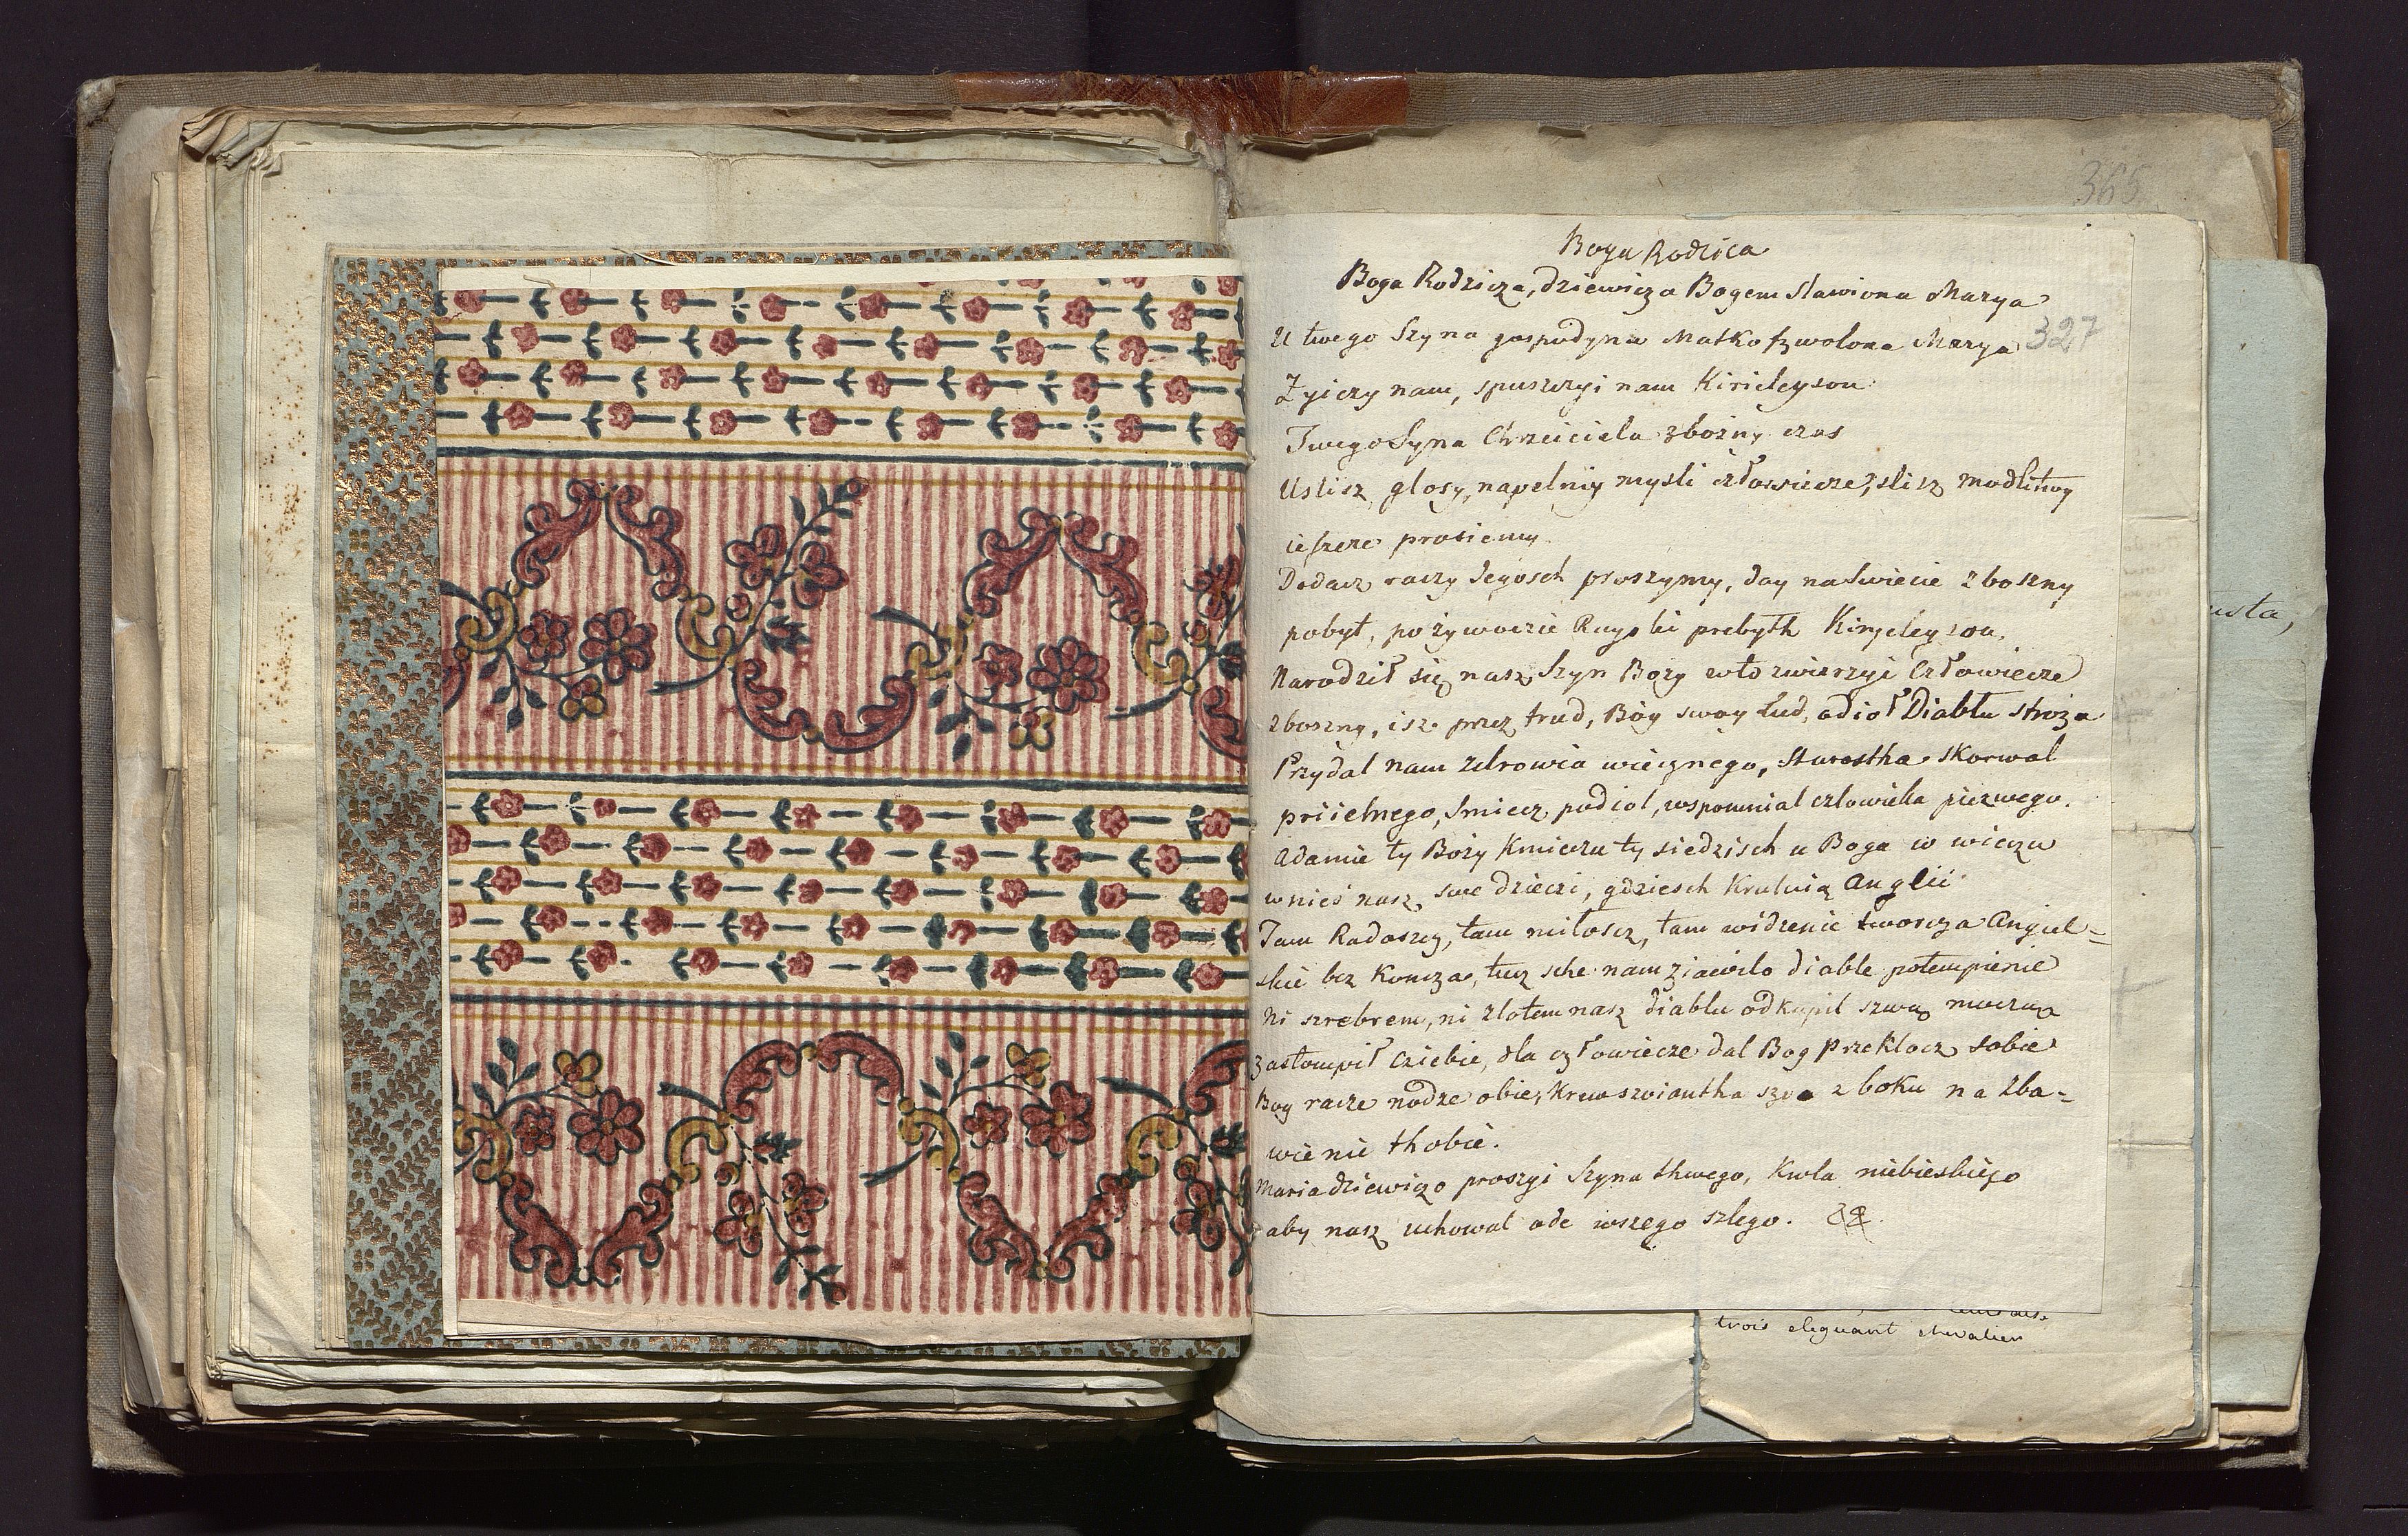 365
Boga Rodzica
Boga Rodzicza, dziewicza Bogem sławiona Marya
327
U twego Szyna gospodyna Matko szwolona Marya
Zyiczy nam, spusczyi nam Kirieleyson
Twego Syna Chrzciciela zbożny czas
Uslisz glosy, napelniy mysli człowiecze, slisz modlitwy
ieszcze prosiemy.
Dodacz raczy Jegosch proszymy, day naswiecie zboszny
pobyt, pożywoczie Rayski prebyth Kiryeleyson.
Narodził się nasz Szyn Boży wto zwierzyi Człowiecze
zboszny, isz przez trud, Bóg swoy Lud, odioł Diabłu stroża
Przydal nam zdrowia wiecznego, Starostha skorwal
priielnego, Smiercz podiol, wspomnial czlowieka pierwego.
Adamie ty Boży Kmieczu ty siedzisch u Boga w wieczu
wnies nasz swe dzieczi, gdziesch Krulują Anglii
Tam Radoszcz, tam miłoscz, tam widzenie tworcza Angiel=
skie bez Koncza, tusz sche nam ziawilo diable potempienie
Ni szrebrem, ni zlotem nasz diablu odkupil szwą moczą
Zastompił Cziebie, dla człowiecze dal Bog Przeklocz sobie
Bog racze nodze obie, Krew szwiantha szva z boku na zba=
wienie thobie.
Maria dziewiczo proszyi Szyna thwego, Krola niebieskiego
aby nasz uchował ode wszego szlego.
usta,
trois eleguant chevalier